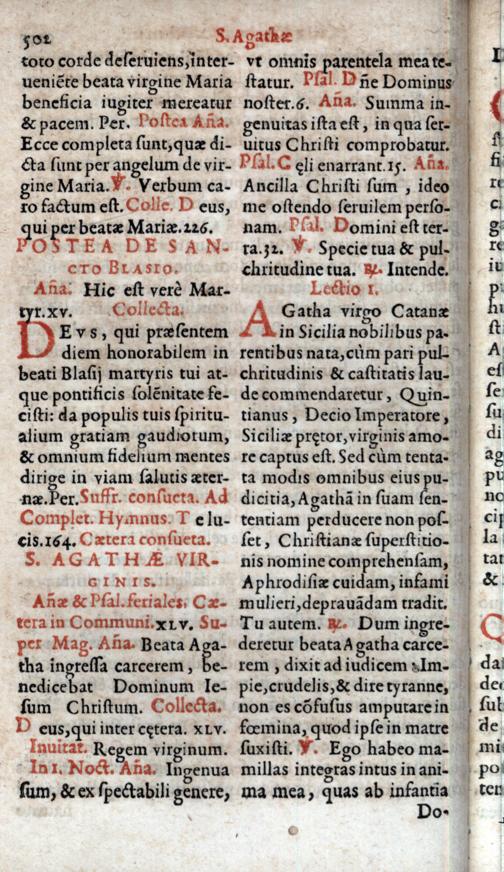 502
S. Agathæ
toto corde deſeruiens, inter-
ueniẽte beata virgine Maria
beneficia iugiter mereatur
& pacem. Per. Poſtea Añа.
Ecce completa ſunt, quæ di-
cta ſunt per angelum de vir-
gine Maria. ℣. Verbum ca-
ro factum eſt. Colle. D eus,
qui per beatæ Mariæ. 226.
POSTEA DE SAN-
CTO BLASIO.
Aña. Hic eſt verè Mar-
tyr. xv. Collecta.
DEVS, qui præſentem
diem honorabilem in
beati Blaſij martyris tui at-
que pontificis ſolẽnitate fe-
ciſti: da populis tuis ſpiritu-
alium gratiam gaudiorum,
& omnium fidelium mentes
dirige in viam ſalutis æter-
næ. Per. Suffr. conſueta. Ad
Complet. Hymnus. T e lu-
cis. 164. Cætera conſueta.
S. AGATHÆ VIR-
GINIS.
Añæ & Pſal. feriales. Cæ-
tera in Communi. XLV. Su-
per Mag. Aña. Beata Aga-
tha ingreſſa carcerem, be-
nedicebat Dominum Ie-
ſum Chriſtum. Collecta.
D eus, qui inter cętera. XLV.
Inuitat. Regem virginum.
In 1. Noct. Aña. Ingenua
ſum, & ex ſpectabili genere,
vt omnis parentela mea te-
ſtatur. Pſal. D ñe Dominus
noſter. 6. Aña. Summa in-
genuitas iſta eſt, in qua ſer-
uitus Chriſti comprobatur.
Pſal. C ęli enarrant. 15. Aña.
Ancilla Chriſti ſum, ideo
me oſtendo ſeruilem perſo-
nam. Pſal. Domini eſt ter-
ra. 32. ℣. Specie tua & pul-
chritudine tua. ℟. Intende.
Lectio 1.
AGatha virgo Catanæ
in Sicilia nobilibus pa-
rentibus nata, cùm pari pul-
chritudinis & caſtitatis lau-
de commendaretur, Quin-
tianus, Decio Imperatore,
Siciliæ prętor, virginis amo-
re captus eſt. Sed cùm tenta-
ta modis omnibus eius pu-
dicitia, Agathã in ſuam ſen-
tentiam perducere non poſ-
ſet, Chriſtianæ ſuperſtitio-
nis nomine comprehenſam,
Aphrodiſiæ cuidam, infami
mulieri, deprauãdam tradit.
Tu autem. ℟. Dum ingre-
deretur beata Agatha carce-
rem, dixit ad iudicem: Im-
pie, crudelis, & dire tyranne,
non es cõfuſus amputare in
fœmina, quod ipſe in matre
ſuxiſti. ℣. Ego habeo ma-
millas integras intus in ani-
ma mea, quas ab infantia
Do-